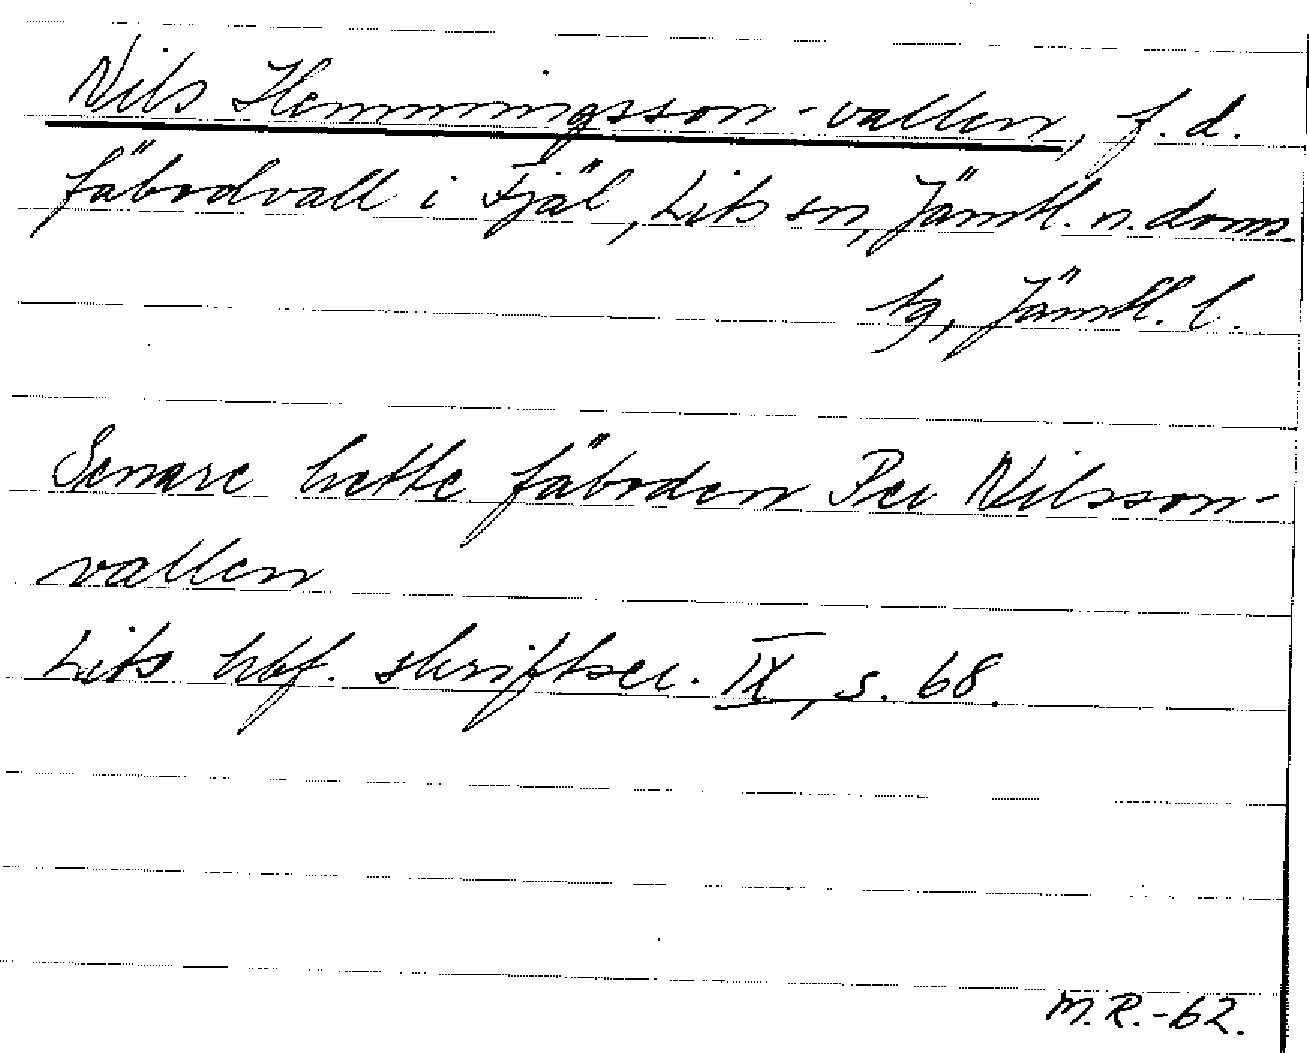 Nils Hemmingsson-vallen, f.d.
fäbodvall i Fjäl, Lits sn, Jämtl. n. doms.
hg, Jämtl. l.
Senare hette fäboden Per Nilsson-
vallen
Lits hbf. skriftser. IX, s. 68.
M.R.-62.